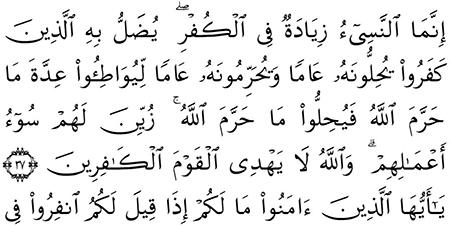 إِنَّمَا ٱلنَّسِىٓءُ زِيَادَةٌ فِى ٱلْكُفْرِ ۖ يُضَلُّ بِهِ ٱلَّذِينَ
كَفَرُوا۟ يُحِلُّونَهُۥ عَامًا وَيُحَرِّمُونَهُۥ عَامًا لِّيُوَاطِـُٔوا۟ عِدَّةَ مَا
حَرَّمَ ٱللَّهُ فَيُحِلُّوا۟ مَا حَرَّمَ ٱللَّهُ ۚ زُيِّنَ لَهُمْ سُوٓءُ
أَعْمَـٰلِهِمْ ۗ وَٱللَّهُ لَا يَهْدِى ٱلْقَوْمَ ٱلْكَـٰفِرِينَ ﴿٣٧﴾
يَـٰٓأَيُّهَا ٱلَّذِينَ ءَامَنُوا۟ مَا لَكُمْ إِذَا قِيلَ لَكُمُ ٱنفِرُوا۟ فِى